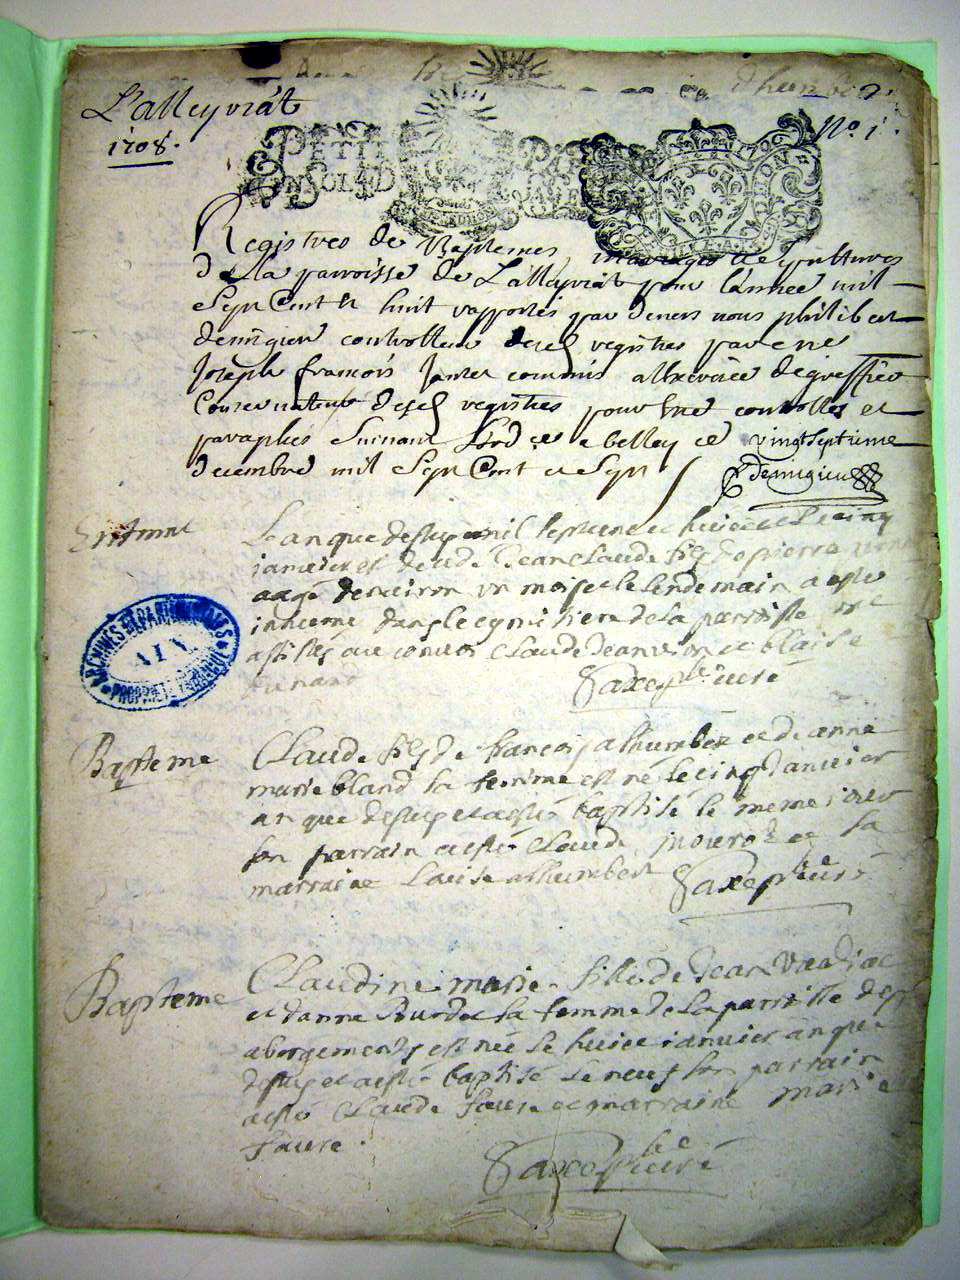 L'alleyriat
1708.
No. 1.
PETIT PAP
EN SOL 4 D
Registres de Baptemes mariages et sepultures
de la parroisse de Lalleyriat pour l'année mil
Sept Cent et huit rapportés par devers nous philibert
demigieu controlleur desd registres par me
Joseph francois Janet commis a l'exercice de greffier
Conservateur desd registres pour être controllés et
paraphés suivant l'ord a belley ce vingt septieme
decembre mil Sept Cent et Sept
demigieu
L'an que dessus mil sept cent et huict et le cinq
janvier est decede Jean Claude fils de pierre
aagé d'environ un mois et le lendemain a esté
inhumé dans le cymitiere de la parroisse ont
assistés au convoi Claude Jean et blaise
Saxe ptre curé
ARCHIVES DEPARTEMENTALES
AIN
PROPRIETE PUBLIQUE
Bapteme
Claude fils de francois alhumbert et de anne
marie bland sa femme est né le cinq janvier
an que dessus et a esté baptisé le meme jour
son parrain a esté Claude et sa
marraine Louise alhumbert
Saxe ptre curé
Bapteme
Claudine marie fille de Jean
et d'anne Bourdet sa femme de la parroisse des
abergements est née le huict janvier an que
dessus et a esté baptisé le neuf son parrain
a esté Claude faure et marraine marie
faure.
Saxe ptre curé